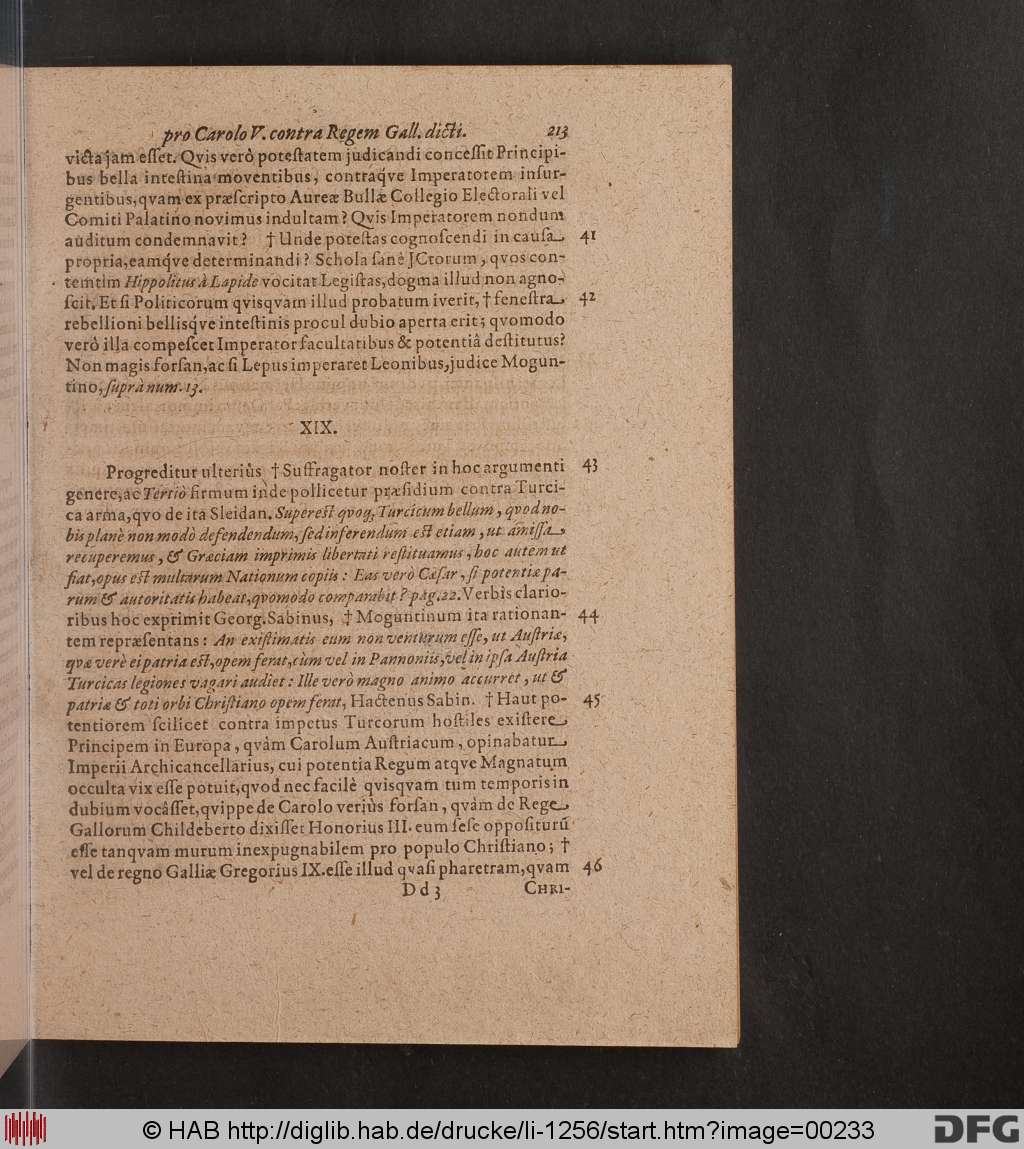 pro Carolo V. contra Regem Gall. dicti. 213
victa jam eſſet. Qvis verò poteſtatem judicandi conceſſit Principi-
bus bella inteſtina moventibus, contraqve Imperatorem inſur-
gentibus, qvam ex præſcripto Aureæ Bullæ Collegio Electorali vel
Comiti Palatino novimus indultam? Qvis Imperatorem nondum
auditum condemnavit? † Unde poteſtas cognoſcendi in cauſa 41
propria, eamqve determinandi? Schola ſanè JCtorum, qvos con-
temtim Hippolitus à Lapide vocitat Legiſtas, dogma illud non agno-
ſcit. Et ſi Politicorum qvisqvam illud probatum iverit, † feneſtra 42
rebellioni bellisqve inteſtinis procul dubio aperta erit; qvomodo
verò illa compeſcet Imperator facultatibus & potentiâ deſtitutus?
Non magis forſan, ac ſi Lepus imperaret Leonibus, judice Mogun-
tino, ſuprà num. 13.
XIX.
Progreditur ulteriùs † Suffragator noſter in hoc argumenti 43
genere, ac Tertiò firmum inde pollicetur præſidium contra Turci-
ca arma, qvo de ita Sleidan. Supereſt qvoq; Turcicum bellum, qvod no-
bis planè non modò defendendum, ſed inferendum eſt etiam, ut amiſſa
recuperemus, & Græciam imprimis libertati reſtituamus, hoc autem ut
fiat, opus eſt multarum Nationum copiis: Eas verò Cæſar, ſi potentiæ pa-
rum & autoritatis habeat, qvomodo comparabit? pag. 22. Verbis clario-
ribus hoc exprimit Georg. Sabinus, † Moguntinum ita rationan- 44
tem repræſentans: An exiſtimatis eum non venturum eſſe, ut Auſtriæ,
qvæ verè ei patria eſt, opem ferat, cùm vel in Pannoniis, vel in ipſa Auſtria
Turcicas legiones vagari audiet: Ille verò magno animo accurret, ut &
patriæ & toti orbi Chriſtiano opem ferat, Hactenus Sabin. † Haut po- 45
tentiorem ſcilicet contra impetus Turcorum hoſtiles exiſtere
Principem in Europa, qvàm Carolum Auſtriacum, opinabatur
Imperii Archicancellarius, cui potentia Regum atqve Magnatum
occulta vix eſſe potuit, qvod nec facilè qvisqvam tum temporis in
dubium vocâſſet, qvippe de Carolo veriùs forſan, qvàm de Rege
Gallorum Childeberto dixiſſet Honorius III. eum ſeſe oppoſiturũ
eſſe tanqvam murum inexpugnabilem pro populo Chriſtiano; †
vel de regno Galliæ Gregorius IX. eſſe illud qvaſi pharetram, qvam 46
D d 3 CHRI-
© HAB http://diglib.hab.de/drucke/li-1256/start.htm?image=00233
DFG